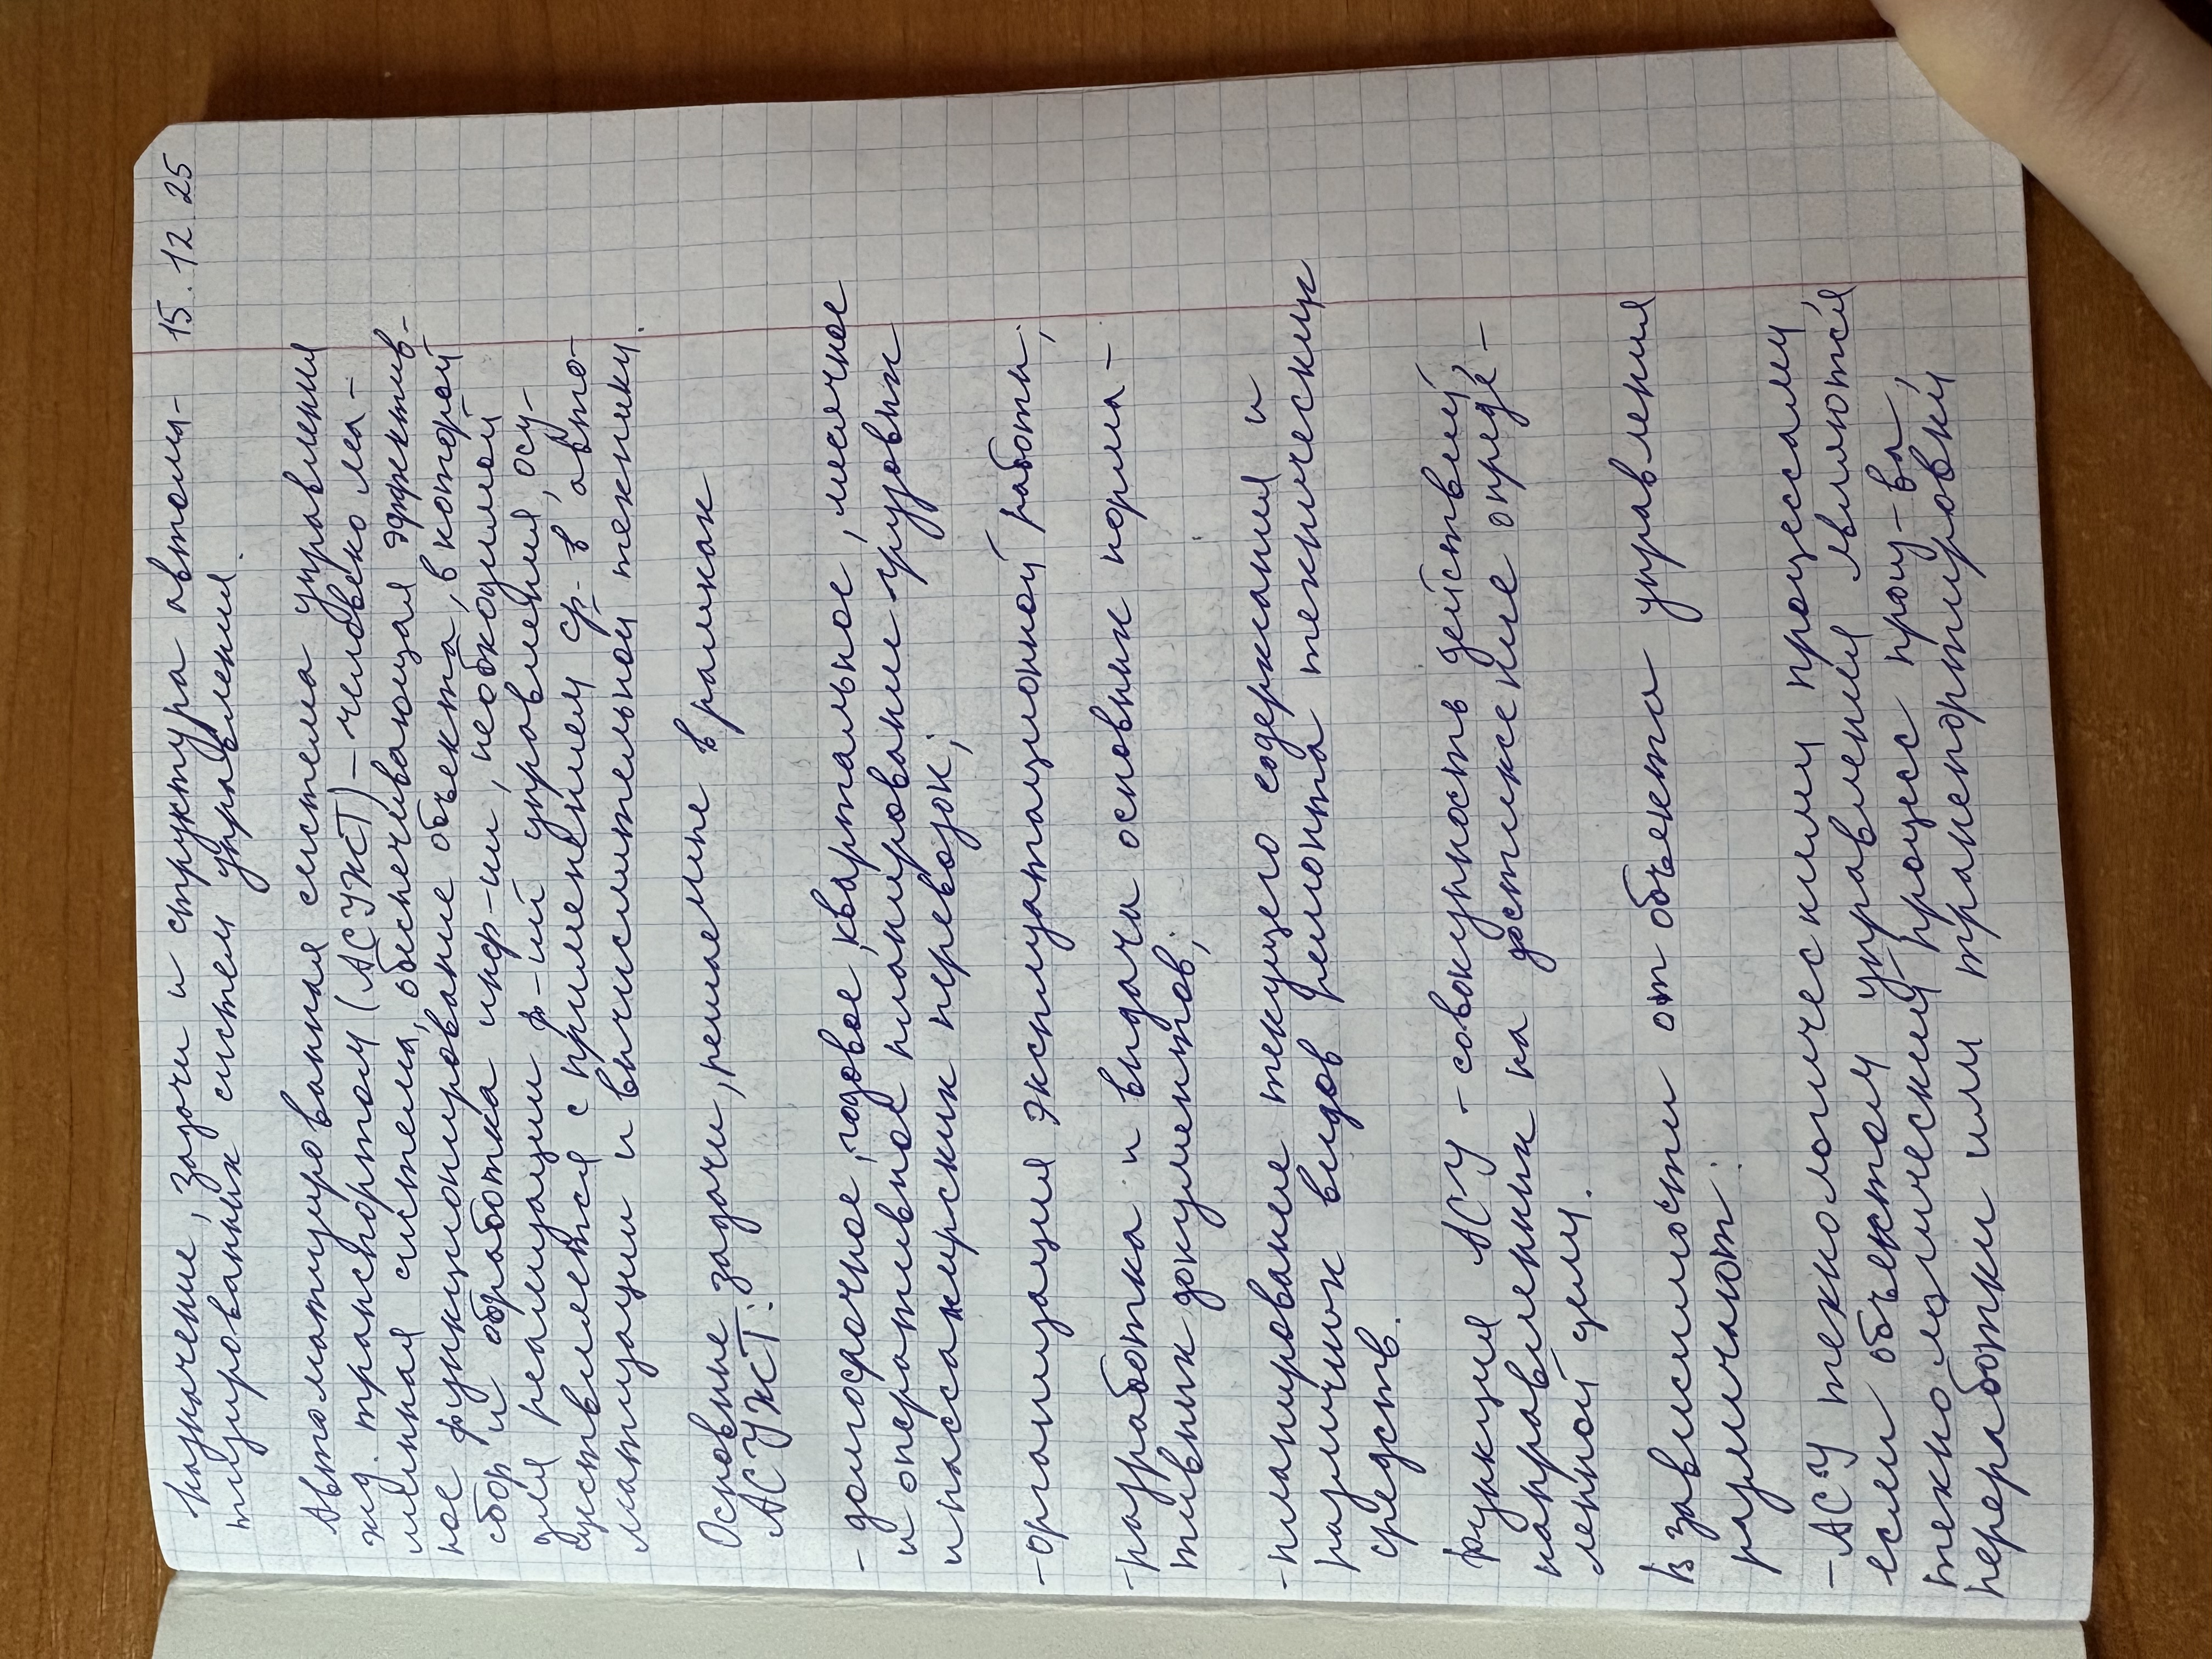 Назначение, задачи и структура автома- 15.12.25
тизированных систем управления.
Автоматизированная система управления
жд. транспортом (АСУЖТ) – человеко ма-
шинная система, обеспечивающая эффектив-
ное функционирование объекта, в которой
сбор и обработка инф-ии, необходимой
для реализации ф-ий управления, осу-
ществляется с применением ср-в автo-
матизации и вычислительной техники.
Основные задачи, решаемые в рамках
АСУЖТ:
- долгосрочное, годовое, квартальное, месячное
и оперативное планирование грузовых
и пассажирских перевозок;
- организация эксплуатационной работы;
- разработка и выдача основных норма-
тивных документов;
- планирование текущего содержания и
различных видов ремонта технических
средств.
Функция АСУ – совокупность действий,
направленных на достижение опреде-
ленной цели.
В зависимости от объекта управления
различают:
- АСУ технологическими процессами,
если объектом управления являются
технологический процесс прои-ва,
переработки или транспортировки